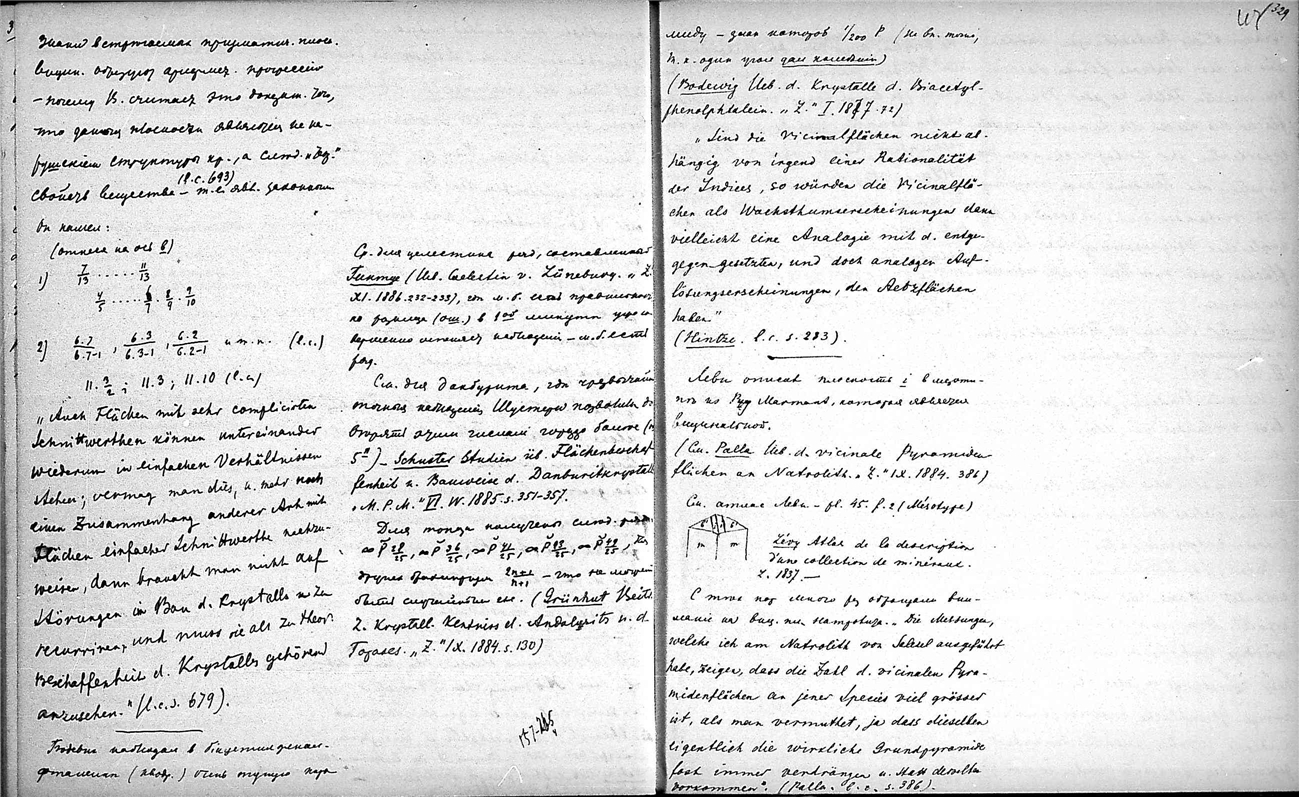 3
Знаки встречаемых призматич. плос.
вицин. образуют арифмет. прогрессию
– почему В. считает это доказат. того,
что данныя плоскости являются не на-
рушением структуры кр., а след.
(l.c. 693)
свойств вещества – т.е. явл. законными
Он нашел:
(отнеся на ось b)
1) 7/13 ...... 11/13
4/5 ..... 6/7 . 8/9 . 9/10
2) 6.7/6.7-1 , 6.3/6.3-1 , 6.2/6.2-1 и т.п. (l.c.)
11.3/2 ; 11.3 ; 11.10 (l.c.)
„Auch Flächen mit sehr complicirten
Schnittwerthen können untereinander
wiederum in einfachen Verhältnissen
stehen; vermag man dies, u. mehr noch
einen Zusammenhang anderer Art mit
Flächen einfacher Schnittwerthe nachzu-
weisen, dann braucht man nicht auf
Störungen im Bau d. Krystalls zu
recurriren, und muss sie als zur
Beschaffenheit d. Krystalls gehörend
anzusehen." (l.c.s. 679).
Бодевиг наблюдал в
(квадр.) очень тупую пира-
Ср. для целестина ряд, составленный
Гинтце (Ueb. Coelestin v. Lüneburg. „Z
XI. 1886. 232-233), где м.б. есть
но разница в 1
наблюдений – м.б. есть
ряд.
См. для данбурита, где чрезвычайн
точныя наблюдения Шустера позволили
гораздо более
5") – Schuster Studien üb. Flächenbeschaf
fenheit u. Bauweise d. Danburitkrystalle
„M.P.M." VI. W. 1885. s. 351-357.
Для топаза получены след.
∞P̆ 28/25, ∞P̆ 36/25, ∞P̆ 41/25, ∞P̆ 43/25, ∞P̆ 49/25,
другия формируя 2n+1/n+1 – что не может
быть случайным etc. (Grünhut Beitr.
Z. Krystall. Kentniss d. Andalusits u. d.
Topases. „Z." IX. 1884. s. 130)
157-265
329
миду – знак которой 1/200 P (и бл. точно,
т.е. один угол дал колебания)
(Bodewig Ueb. d. Krystalle d. Biacetyl-
phenolphtalein. „Z." I. 1877. 72)
„Sind die Vicinalflächen nicht ab-
hängig von irgend einer Rationalität
der Indices, so würden die Vicinalflä-
chen als Wachsthumserscheinungen dann
vielleicht eine Analogie mit d. entge-
gegen gesetzten, und doch analogen Auf-
lösungserscheinungen, den Aetzflächen
haben."
(Hintze. l.c. s. 233).
Леви описал плоскость i в мезоти-
пе из Puy Marmant, которая является
вицинальной.
(См. Palla Ueb. d. vicinale Pyramiden
flächen an Natrolith. „Z." IX. 1884. 386)
См. атлас Леви – pl. 45. f. 2 (Mésotype)
m m
Lévy Atlas de la description
d'une collection de minéraux.
L. 1837. –
С тех пор много раз обращали вни-
мание на виц. пл. натролита. „Die Messungen,
welche ich am Natrolith von Salesl ausgeführt
habe, zeigen, dass die Zahl d. vicinalen Pyra-
midenflächen an jener Species viel grösser
ist, als man vermuthet, ja dass dieselben
eigentlich die wirkliche Grundpyramide
fast immer verdrängen u. statt derselben
vorkommen". (Palla. l.c. s. 386).